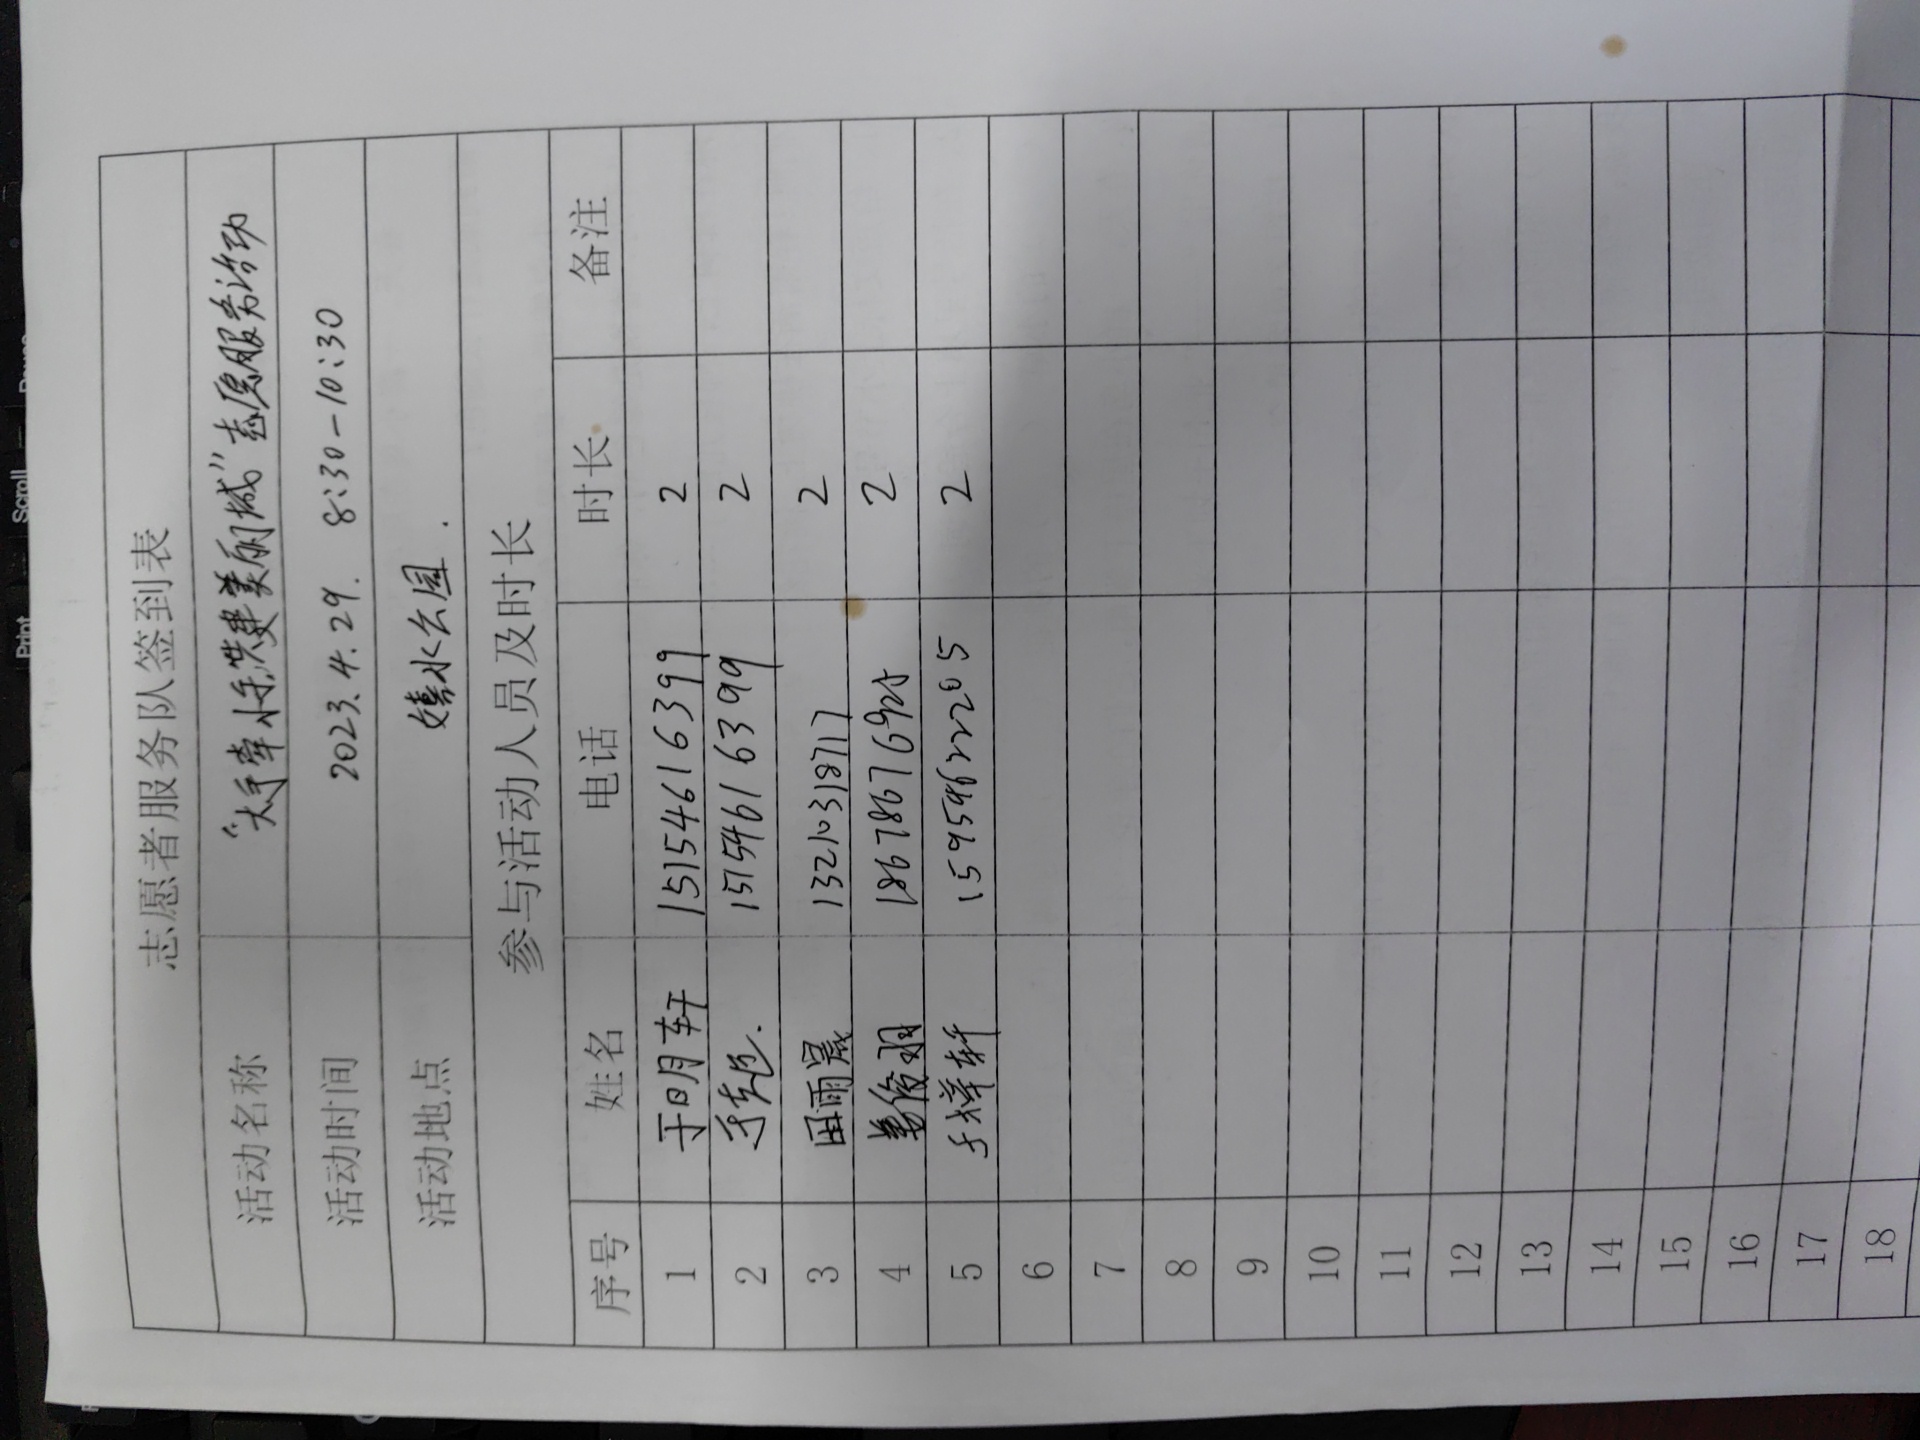 志愿者服务队签到表
活动名称 "大手牵小手,共建美丽城"志愿服务活动
活动时间 2023.4.29. 8:30-10:30
活动地点 嬉水公园.
参与活动人员及时长
序号 姓名 电话 时长 备注
1 于明轩 15154616399 2
2 15154616399 2
3 田雨晨 13210318717 2
4 2
5 2
6
7
8
9
10
11
12
13
14
15
16
17
18
Print
Scroll